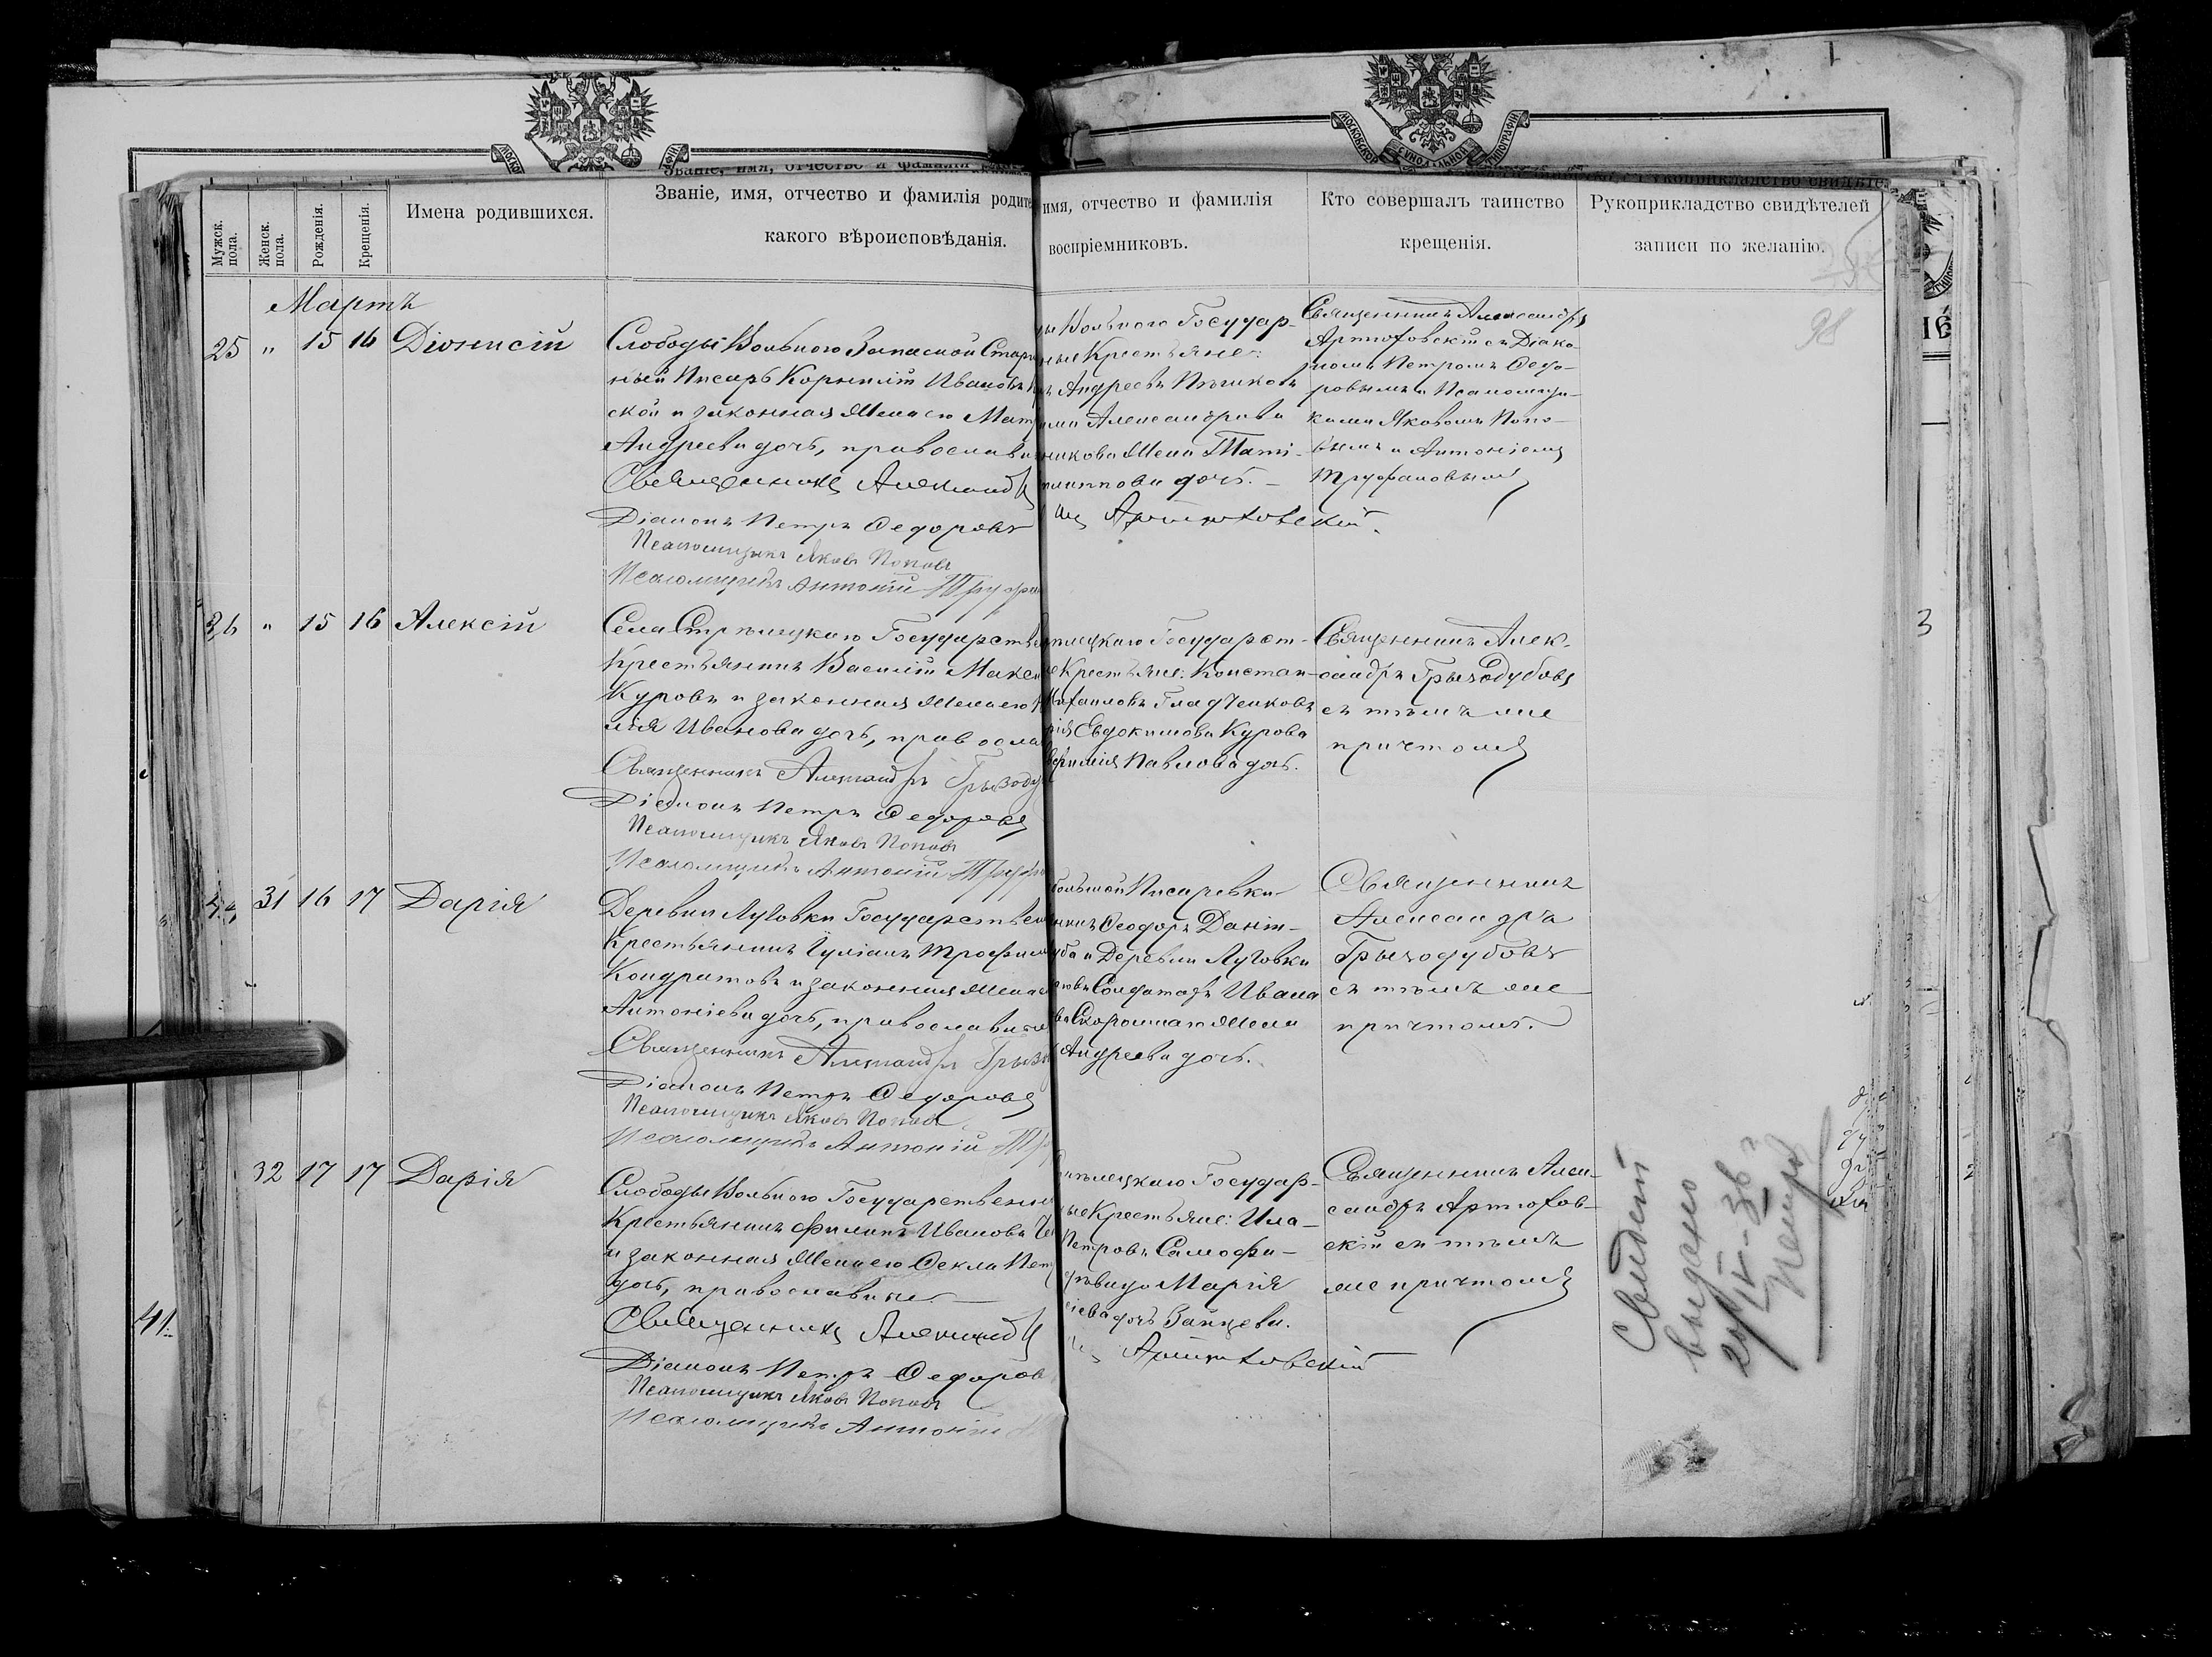 Званіе, имя, отчество и фамилія родите
какого вѣроисповѣданія.
Мужск. пола.
Женск. пола.
Рожденія.
Крещенія.
Имена родившихся.
имя, отчество и фамилія
воспріемниковъ.
Кто совершалъ таинство
крещенія.
Рукоприкладство свидѣтелей
записи по желанію.
98
Мартъ
25 " 15 16 Діонисій
Слободы Вольного Запасной Стар
ный Писарь Корнилій Ивановъ
ской и законная Жена его Мат
Андреева дочь, православн
Священникъ Александръ
Діаконъ Петръ Ѳедоровъ
Псаломщикъ Яковъ Поповъ
Псаломщикъ Антоній Труфа
ы Вольного Государ-
ные Крестьяне:
Андреевъ
Александрова
никова Жена Тати-
липпова дочь.
Артюховскій.
Священникъ Александръ
Артюховскій съ Діако-
номъ Петромъ Ѳедо-
ровымъ и Псаломщи-
ками Яковомъ Попо-
вымъ и Антоніемъ
Труфановымъ
26 " 15 16 Алексій
Села Стрѣлецкаго Государств
Крестьянинъ Василій Макси
Куровъ и законная Жена его
Иванова дочь, правосла
Священникъ Александръ Грызоду
Діаконъ Петръ Ѳедоровъ
Псаломщикъ Яковъ Поповъ
Псаломщикъ Антоній Труф
лецкаго Государст-
е Крестьяне: Констан-
Михаиловъ Гладченковъ
рія Евдокимова Курова
фимія Павлова дочь.
Священникъ Алек-
сандръ Грызодубовъ
съ тѣмъ же
причтомъ
31 16 17 Дарія
Деревни Луговки Государствен
Крестьянинъ Іуліанъ Трофим
Кондратовъ и законная Жена
Антоніева дочь, православн
Священникъ Александръ Грызо
Діаконъ Петръ Ѳедоровъ
Псаломщикъ Яковъ Поповъ
Псаломщикъ Антоній Тр
большой Писаревки
нинъ Ѳеодоръ Даніи-
уба и Деревни Луговки
Солдатъ Ивана
Жена
Андреева дочь.
Священникъ
Александръ
Грызодубовъ
съ тѣмъ же
причтомъ.
32 17 17 Дарія
Слободы Вольного Государственн
Крестьянинъ Филипъ Ивановъ
и законная Жена его Ѳекла Пет
дочь, православные
Священникъ Александръ
Діаконъ Петръ Ѳедоров
Псаломщикъ Яковъ Поповъ
Псаломщикъ Антоній
трѣлецкаго Государ-
ные Крестьяне: Ила-
Петровъ Самофа-
дѣвица Марія
сіева дочь Зайцева.
Артюховскій
Священникъ Алек-
сандръ Артюхов-
скій съ тѣмъ
же причтомъ
Свидет
выдано
41.
3